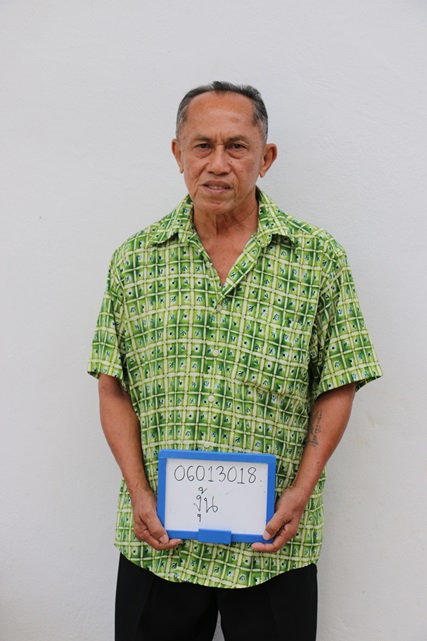 06013018.
งุ้น